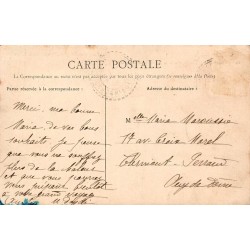 CARTE POSTALE
La Correspondance au recto n'est pas acceptée par tous les pays étrangers (se renseigner à la Poste)
Partie réservée à la correspondance
Adresse du destinataire
Merci, ma bonne
Maria de vos bons
souhaits, je pense
que vous ne souffrez
plus de la chaleur
et que vous pouvez
vous
à votre grand voyage
Mlle Maria
1 av. Croix Morel
Clermont-Ferrand
Puy de Dôme